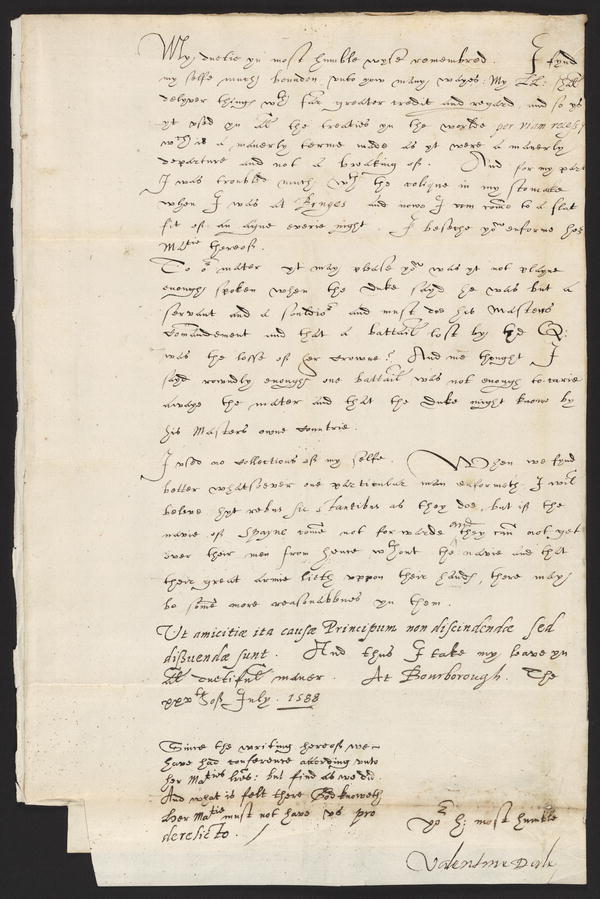 My duetie yn most humble wyse remembred. I fynd
my selfe much bounden unto yow many wayes: My LL: shall
delyver things wth farr greater credit and regard, and so ys
yt used yn all the treaties yn the worlde per viam recess
wch is a manerly terme made as yt were a manerly
departure and not a breaking of. And for my part
I was troubled much wth the colique in my stomake
when I was at Bruges and nowe I am come to a flat
fit of an ague everie night. I beseche yor enforme her
Matie thereof.
To or mater yt may please yor was yt not playne
enough spoken when the Duke sayd he was but a
servant and a souldior and must doe his Masters
comandement and that a battaill lost by the Q:
was the losse of her crowne? And me thought I
sayd rowndly enough one battaill was not enough to carie
awaye the mater and that the Duke might knowe by
his Masters owne countrie.
I used no collections of my selfe. When we fynd
better whatsoever one particular man enformeth I will
beleve hyt rebus sic stantibus as they doe, but if the
navie of Spayne come not forwarde and they can not get
over their men from hence wthout the navie and that
their great armie lieth uppon their hands, there may
be some more reasonablenes yn them.
Ut amicitiæ ita causæ Principum non discindendæ sed
dissuendæ sunt. And thus I take my leave yn
all duetifull maner. At Bourborough. The
xxxth of July. 1588
Since the writing hereof we
have had conference according unto
her Maties lres: but find as we did.
And what is felt there God knoweth
Her Matie must not have us pro
derelicto.
Yor H: most humble
Valentine Dale